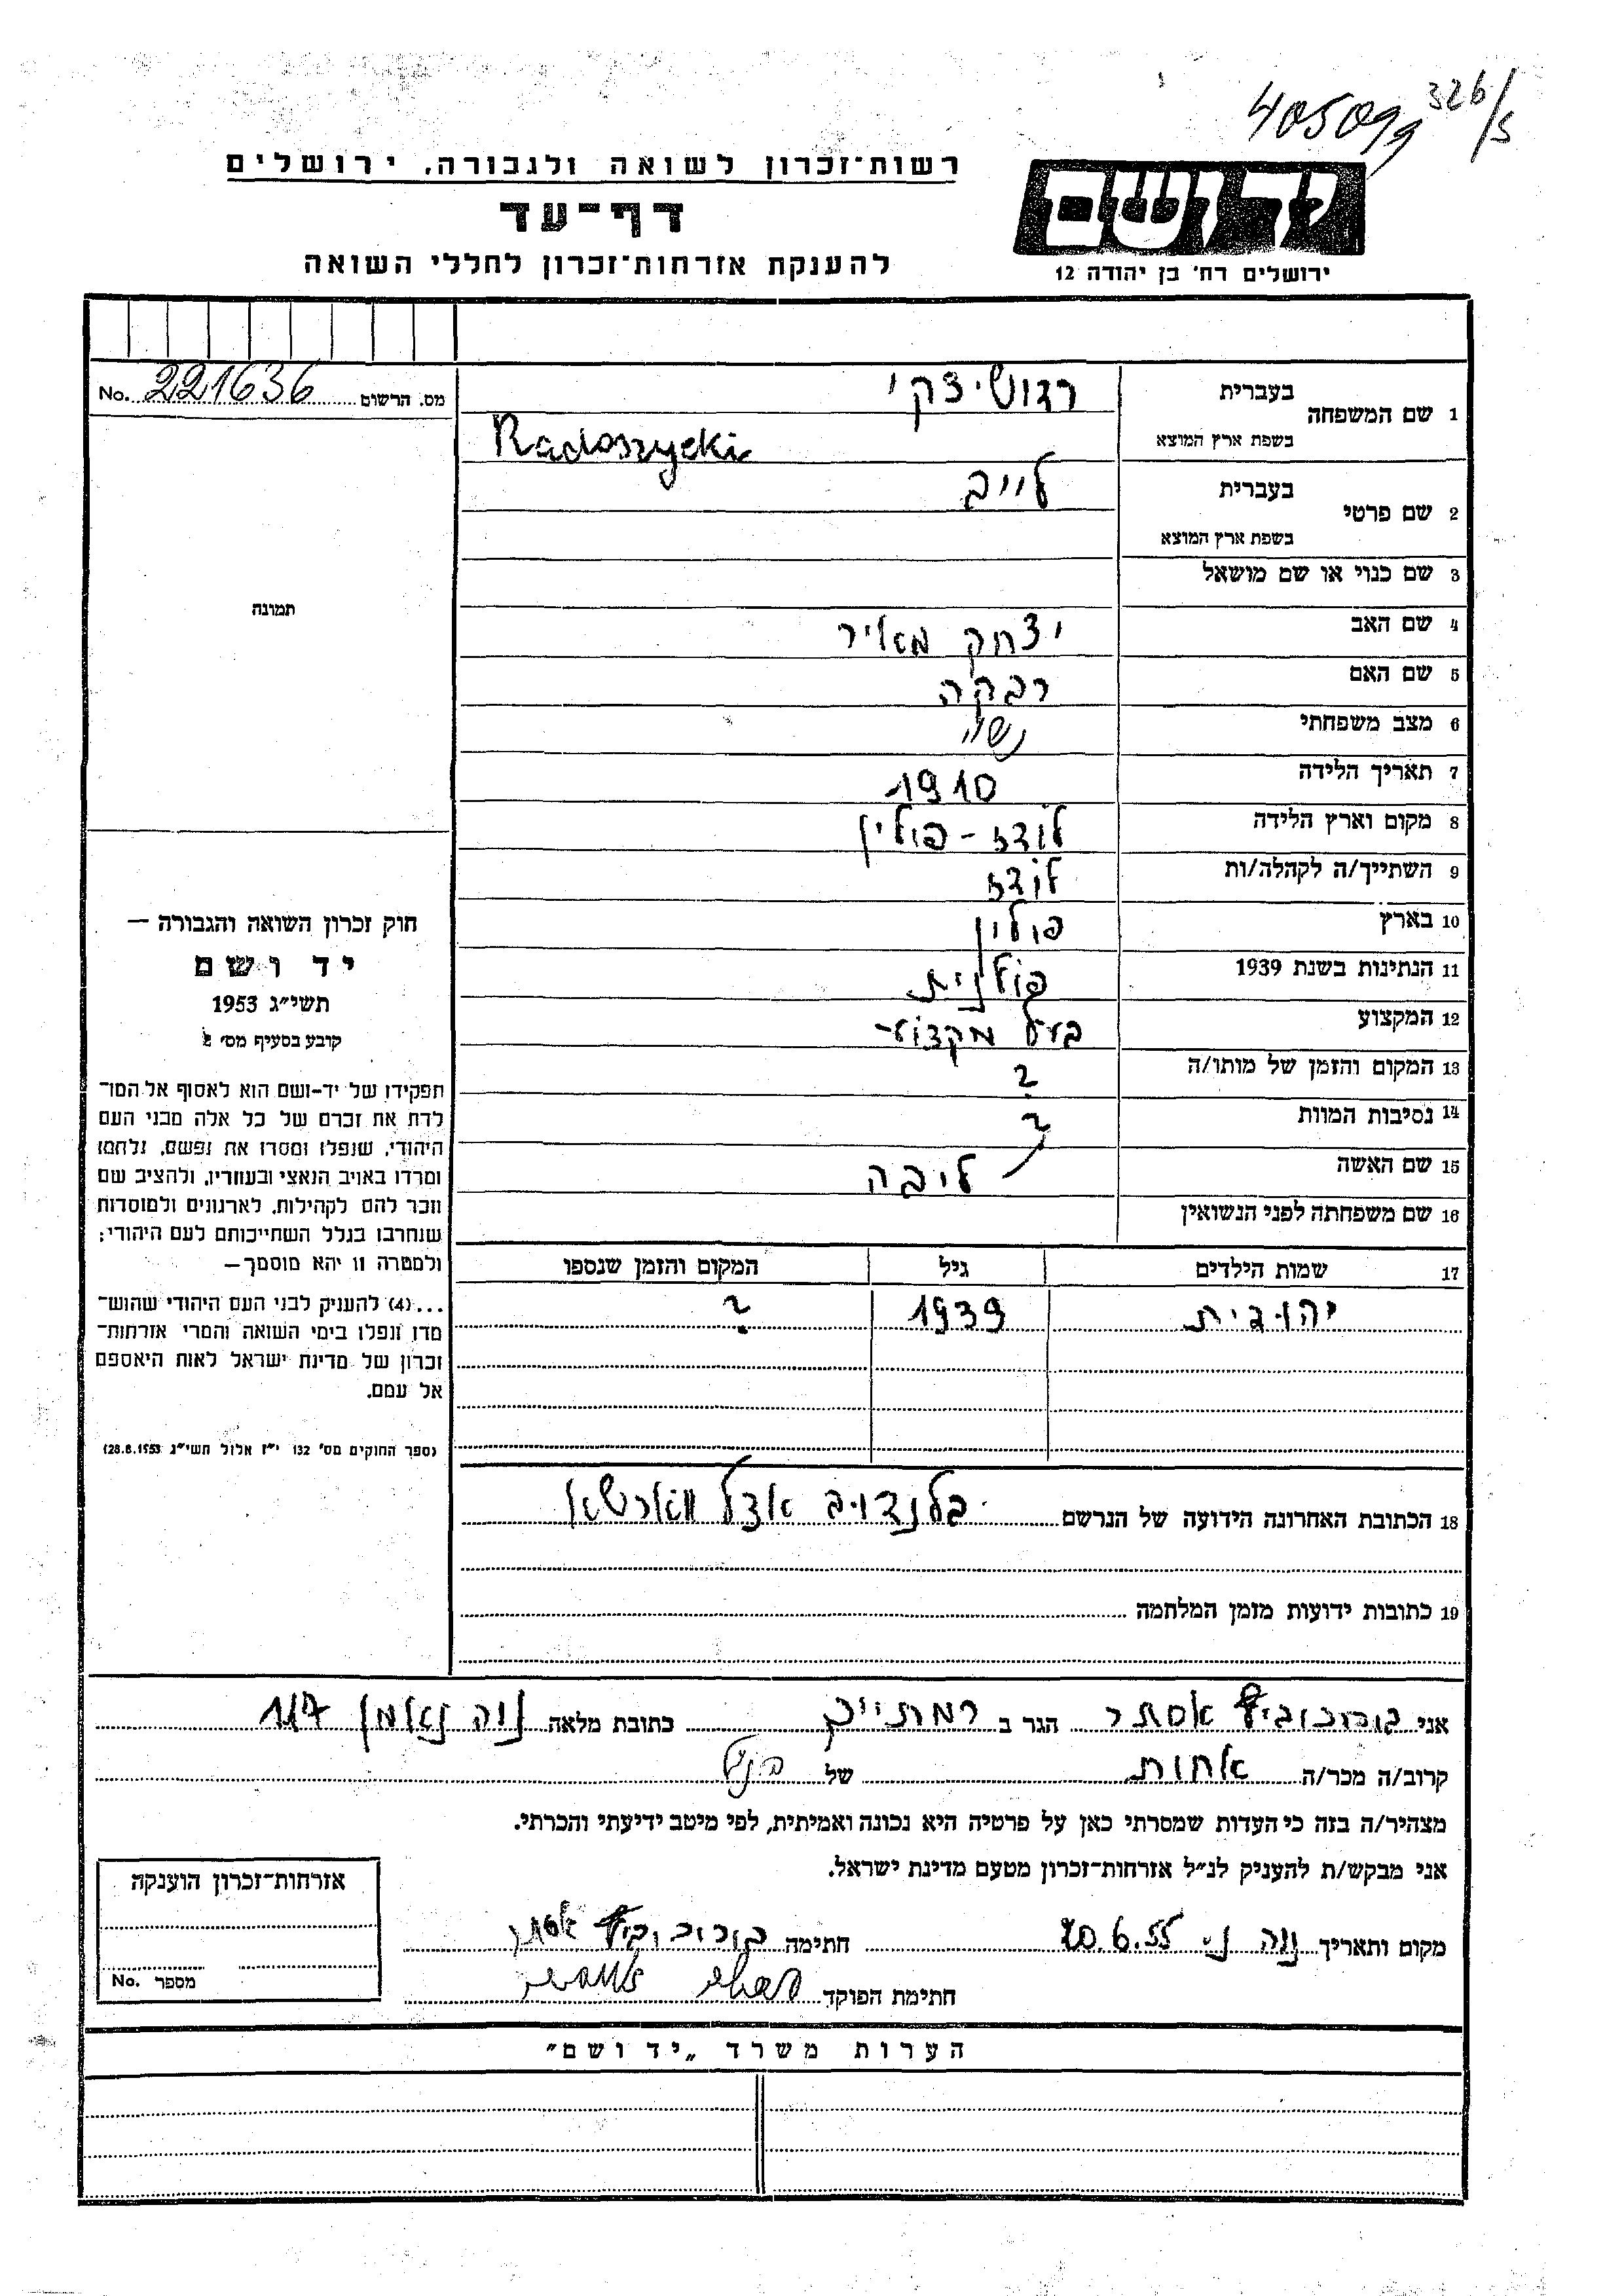 405099 326/5
רשות־זכרון לשואה ולגבורה, ירושלים
דף־עד
להענקת אזרחות־זכרון לחללי השואה
יד ושם
ירושלים רח' בן יהודה 12
מס. הרשום 221636 No.
1 שם המשפחה בעברית רדושיצקי
בשפת ארץ המוצא Radoszycki
2 שם פרטי בעברית לייב
בשפת ארץ המוצא
3 שם כנוי או שם מושאל
4 שם האב יצחק מאיר
5 שם האם רבקה
6 מצב משפחתי נשוי
7 תאריך הלידה 1910
8 מקום וארץ הלידה לודז - פולין
9 השתייך/ה לקהלה/ות לודז
10 בארץ פולין
11 הנתינות בשנת 1939 פולנית
12 המקצוע בעל מקצוע
13 המקום והזמן של מותו/ה ?
14 נסיבות המוות ?
15 שם האשה ליבה
16 שם משפחתה לפני הנשואין
17 שמות הילדים גיל המקום והזמן שנספו
יהודית 1939 ?
18 הכתובת האחרונה הידועה של הנרשם בלנדוב אצל ווארשא
19 כתובות ידועות מזמן המלחמה
תמונה
חוק זכרון השואה והגבורה —
יד ושם
תשי״ג 1953
קובע בסעיף מס׳ 2
תפקידו של יד-ושם הוא לאסוף אל המו־
לדת את זכרם של כל אלה מבני העם
היהודי, שנפלו ומסרו את נפשם, נלחמו
ומרדו באויב הנאצי ובעוזריו, ולהציב שם
וזכר להם לקהילות, לארגונים ולמוסדות
שנחרבו בגלל השתייכותם לעם היהודי;
ולמטרה זו יהא מוסמך—
...(4) להעניק לבני העם היהודי שהוש־
מדו ונפלו בימי השואה והמרי אזרחות־
זכרון של מדינת ישראל לאות היאספם
אל עמם.
(ספר החוקים מס׳ 132 י״ז אלול תשי״ג 28.8.1953)
אני אסתר הגר ב רמתיים כתובת מלאה נוה נאמן 117
קרוב/ה מכר/ה אחות של הנ״ל
מצהיר/ה בזה כי העדות שמסרתי כאן על פרטיה היא נכונה ואמיתית, לפי מיטב ידיעתי והכרתי.
אני מבקש/ת להעניק לנ״ל אזרחות־זכרון מטעם מדינת ישראל.
מקום ותאריך נוה נ׳ 20.6.55 חתימה אסתר
חתימת הפוקד
אזרחות־זכרון הוענקה
מספר No.
הערות משרד „יד ושם״